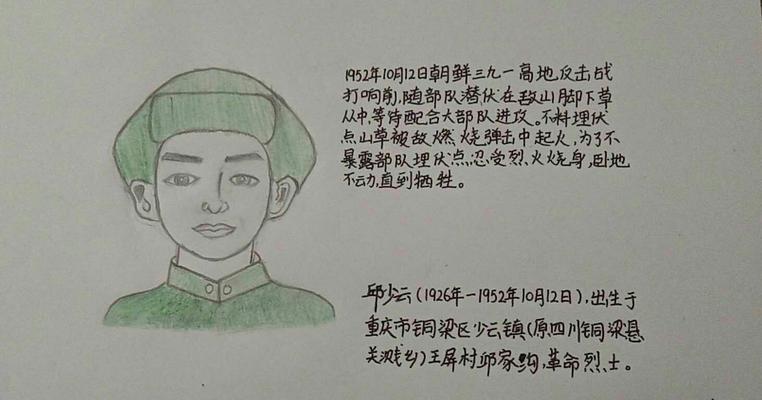 1952年10月12日朝鲜三九一高地反击战
打响前,随部队潜伏在敌山脚下草
丛中,等待配合大部队进攻。不料埋伏
点山草被敌燃烧弹击中起火,为了不
暴露部队埋伏点,忍受烈火烧身,卧地
不动,直到牺牲。
邱少云(1926年-1952年10月12日),出生于
重庆市铜梁区少云镇(原四川铜梁县
关溅乡)玉屏村邱家沟,革命烈士。